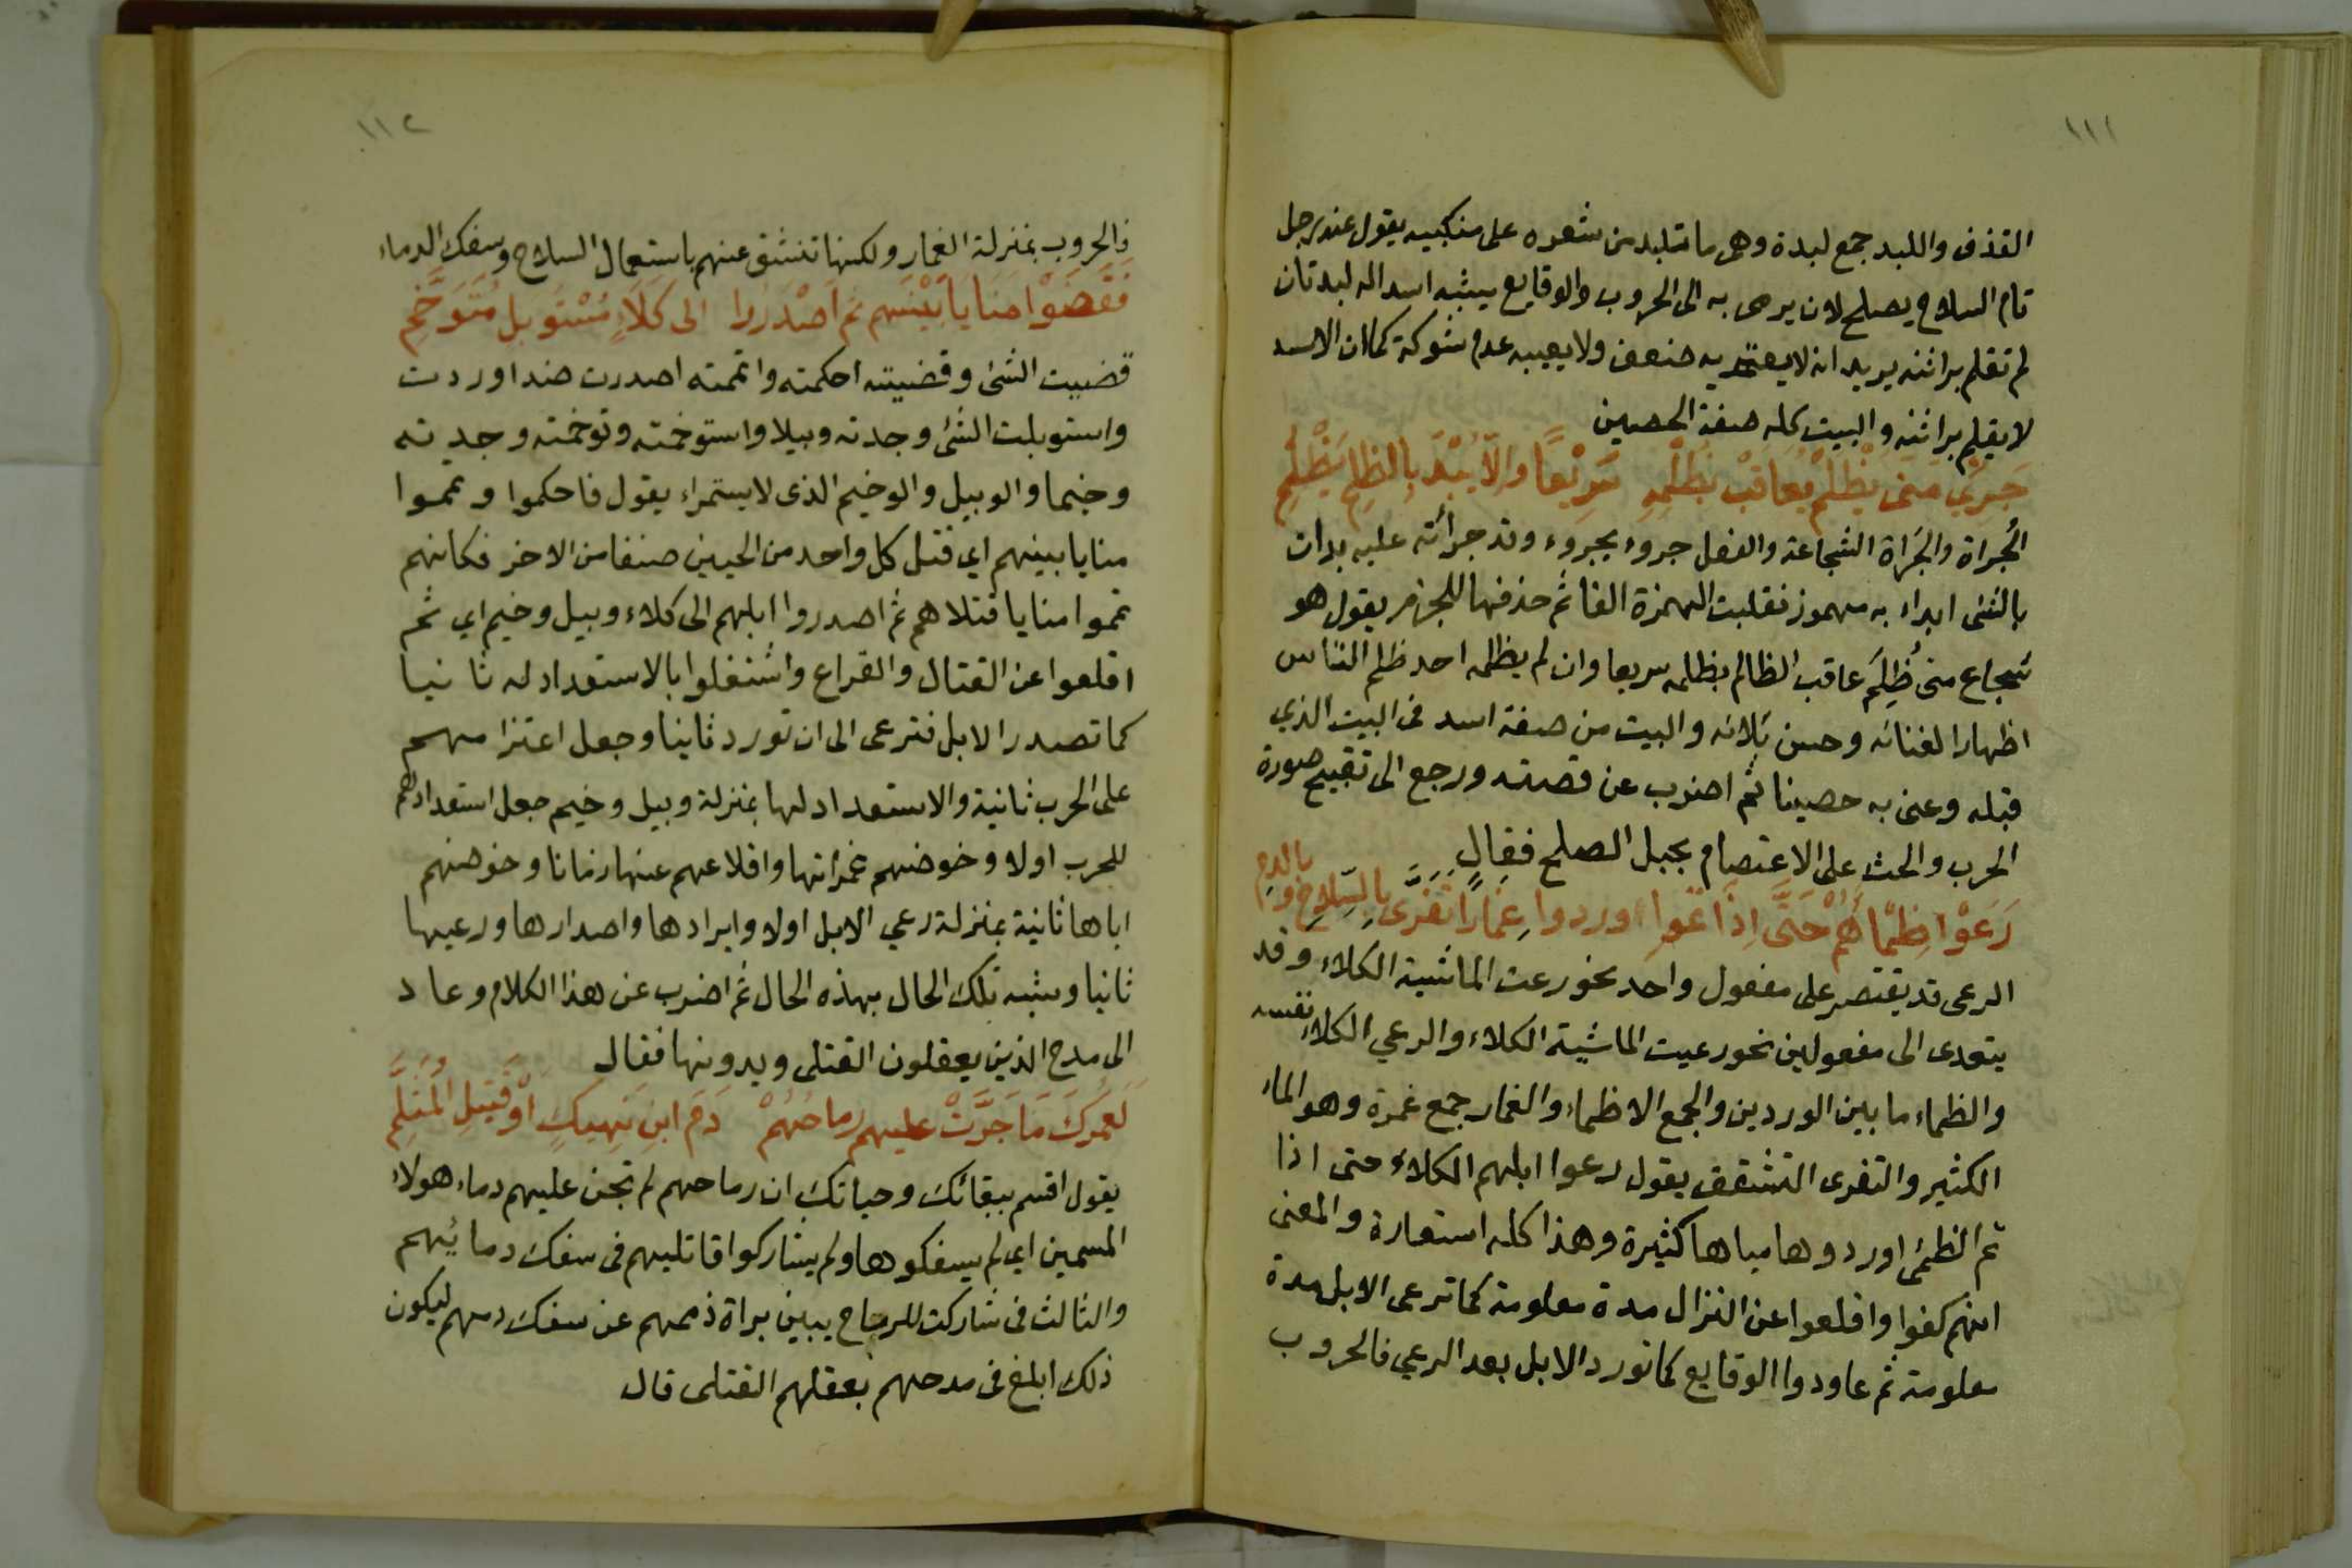 ١١١
القذف واللبد جمع لبدة وهى ما تلبد من شعره على منكبيه يقول عند رجل
تام السلاح يصلح لان يرمى به الى الحروب والوقايع يشبه اسدا له لبدتان
لم تقلم براثنه يريد انه لا يعتريه ضعف ولا يعيبه عدم شوكة كما ان الاسد
لا يقلم براثنه والبيت كله صفة الحصين
جَرِيٍ مَتى يُظْلَمْ يُعاقِبْ بظُلْمِهِ سَرِيْعًا وَاِلّا يُبْدَ بِالظلمِ يَظْلِمِ
الجُراة والجَراة الشجاعة والفعل جروء يجروء وقد جرأته عليه بدات
بالشئى ابداء به مهموز فقلبت الهمزة الفا ثم حذفها للجزم يقول هو
شجاع متى ظُلِمَ عاقب الظالم بظلمه سريعا وان لم يظلمه احد ظلم الناس
اظهارا لغنائه وحسن بَلائه والبيت من صفة اسد فى البيت الذي
قبله وعنى به حصينا ثم اضرب عن قصته ورجع الى تقبيح صورة
الحرب والحث على الاعتصام بحبل الصلح فقال
رَعَوْا ظِمْأَهُمْ حَتَّى اِذَا تَمّوا اوردوا غِمَارًا تَفَرَّى بِالسِّلاحِ وَبالدمِ
الرعى قد يقتصر على مفعول واحد نحو رعت الماشية الكلاء وقد
يتعدى الى مفعولين نحو رعيت الماشية الكلاء والرعي الكلاء نفسه
والظماء ما بين الوردين والجمع الاظماء والغمار جمع غمرة وهو الماء
الكثير والتفرى التشقق يقول رعوا ابلهم الكلاء حتى اذا
تم الظمئ اوردوها مياها كثيرة وهذا كله استعارة والمعنى
انهم كفوا واقلعوا عن النزال مدة معلومة كما ترعى الابل مدة
معلومة ثم عاودوا الوقايع كما تورد الابل بعد الرعي فالحروب
١١٢
فالحروب بمنزلة الغمار ولكنها تنشق عنهم باستعمال السلاح وسفك الدماء
فَقَضَوْا مَنَايا بَيْنَهم ثم اَصْدَرُوا الى كَلَاءٍ مُسْتَوبَلٍ مُتَوَخَّمِ
قضيت الشئ وقضيته احكمته واتممته اصدرت ضد اوردت
واستوبلت الشئ وجدته وبيلا واستوخمته وتوخمته وجدته
وخيما والوبيل والوخيم الذى لا يستمراء يقول فاحكموا وتمموا
منايا بينهم اي قتل كل واحد من الحيين صنفا من الاخر فكانهم
تموا منايا قتلاهم ثم اصدروا ابلهم الى كلاء وبيل وخيم اي ثم
اقلعوا عن القتال والقراع واشتغلوا بالاستعداد له ثانيا
كما تصدر الابل فترعى الى ان تورد ثانيا وجعل اعتزامهم
على الحرب ثانية والاستعداد لها بمنزلة وبيل وخيم جعل استعدادهم
للحرب اولا وخوضهم غمراتها واقلاعهم عنها زمانا وخوضهم
اياها ثانية بمنزلة رعي الابل اولا وايرادها واصدارها ورعيها
ثانيا وشبه تلك الحال بهذه الحال ثم اضرب عن هذا الكلام وعاد
الى مدح الذين يعقلون القتلى ويدونها فقال
لَعَمْرُكَ مَا جَرَّتْ عليهم رماحُهُمْ دَمَ ابنِ نَهِيكٍ اوْ قَتِيلِ المُثَلَّمِ
يقول اقسم ببقائك وحياتك ان رماحهم لم تجن عليهم دماء هولاء
المسمين اي لم يسفكوها ولم يشاركوا قاتليهم فى سفك دمائهم
والثالث فى شاركت للرماح يبين براة ذممهم عن سفك دمهم ليكون
ذلك ابلغ فى مدحهم بعقلهم القتلى قال